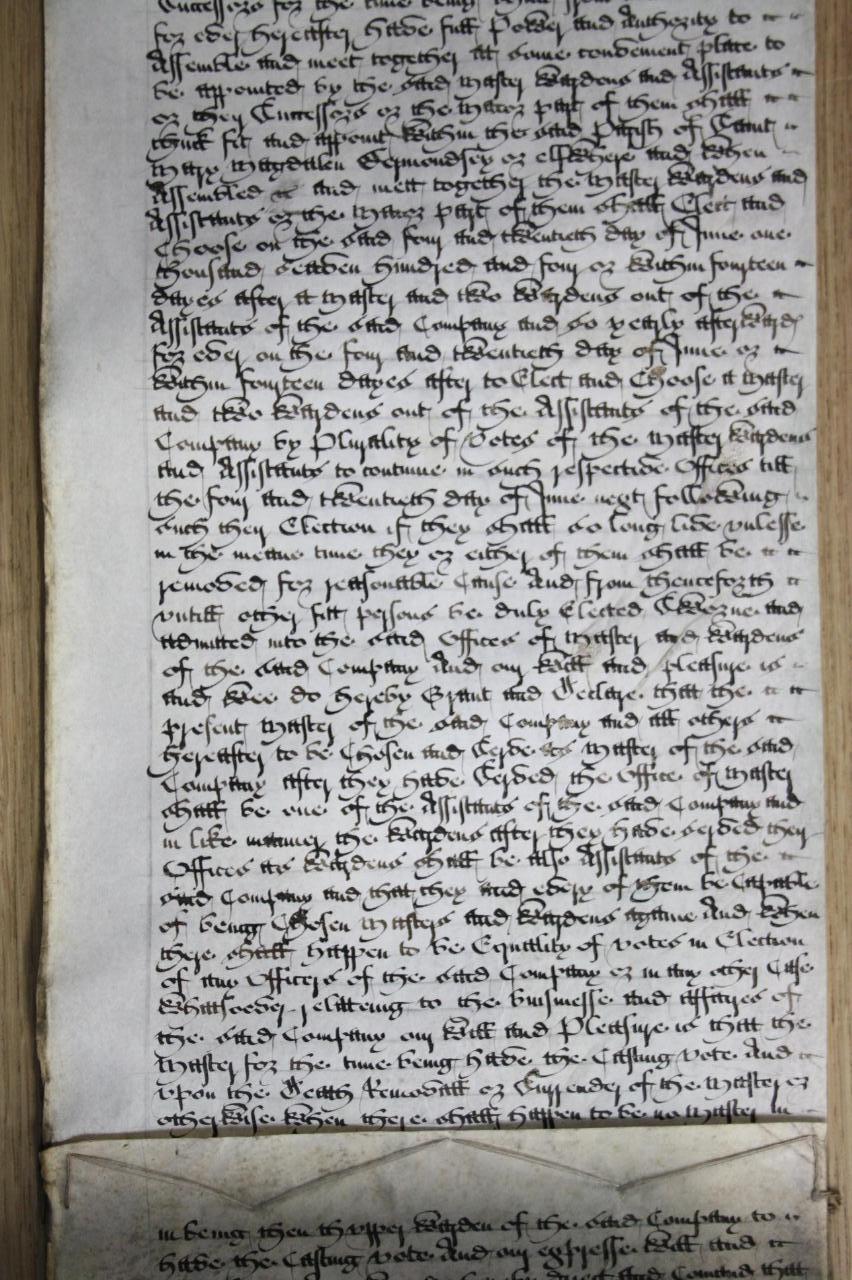 Successors for the time being
for ever hereafter have full Power and Authority to
Assemble and meet together att some convenient place to
be appointed by the said Master Wardens and Assistants
or their Successors or the Major part of them shall
think fit and appoint within the said Parish of Saint
Mary Magdalen Bermondsey or elswhere and when
Assembled and mett together the Master Wardens and
Assistants or the Major part of them shall Elect and
Choose on the said four and twentieth day of June one
thousand seaven hundred and four or within fourteen
dayes after a Master and two Wardens out of the
Assistants of the said Company and so yearly afterward
for ever on the four and twentieth day of June or
within fourteen dayes after to Elect and Choose a Master
and two Wardens out of the Assistants of the said
Company by Plurality of Votes of the Master Wardens
and Assistants to continue in such respective Offices till
the four and twentieth day of June next following
such their Election if they shall so long live vnlesse
in the meane time they or either of them shall be
removed for reasonable Cause And from thenceforth
vntill other fitt persons be duly Elected Sworne and
admitted into the said Offices of Master and Wardens
of the said Company And our Will and pleasure is
and Wee do hereby Grant and Declare that the
present Master of the said Company and all others
hereafter to be Chosen and Serve as Master of the said
Company after they have Served the Office of Master
shall be one of the Assistants of the said Company and
in like manner the Wardens after they have served their
Offices as Wardens shall be also Assistants of the
said Company and that they and every of them be Capable
of being Chosen Masters and Wardens againe And when
there shall happen to be Equality of votes in Election
of any Officers of the said Company or in any other Case
whatsoever relateing to the buisinesse and affaires of
the said Company our Will and Pleasure is that the
Master for the time being have the Casting Vote And
vpon the Death Removall or Surrender of the Master or
otherwise when there shall happen to be no Master in
in being then th vpper Warden of the said Company to
have the Casting Vote And our expresse Will and
and Comand that